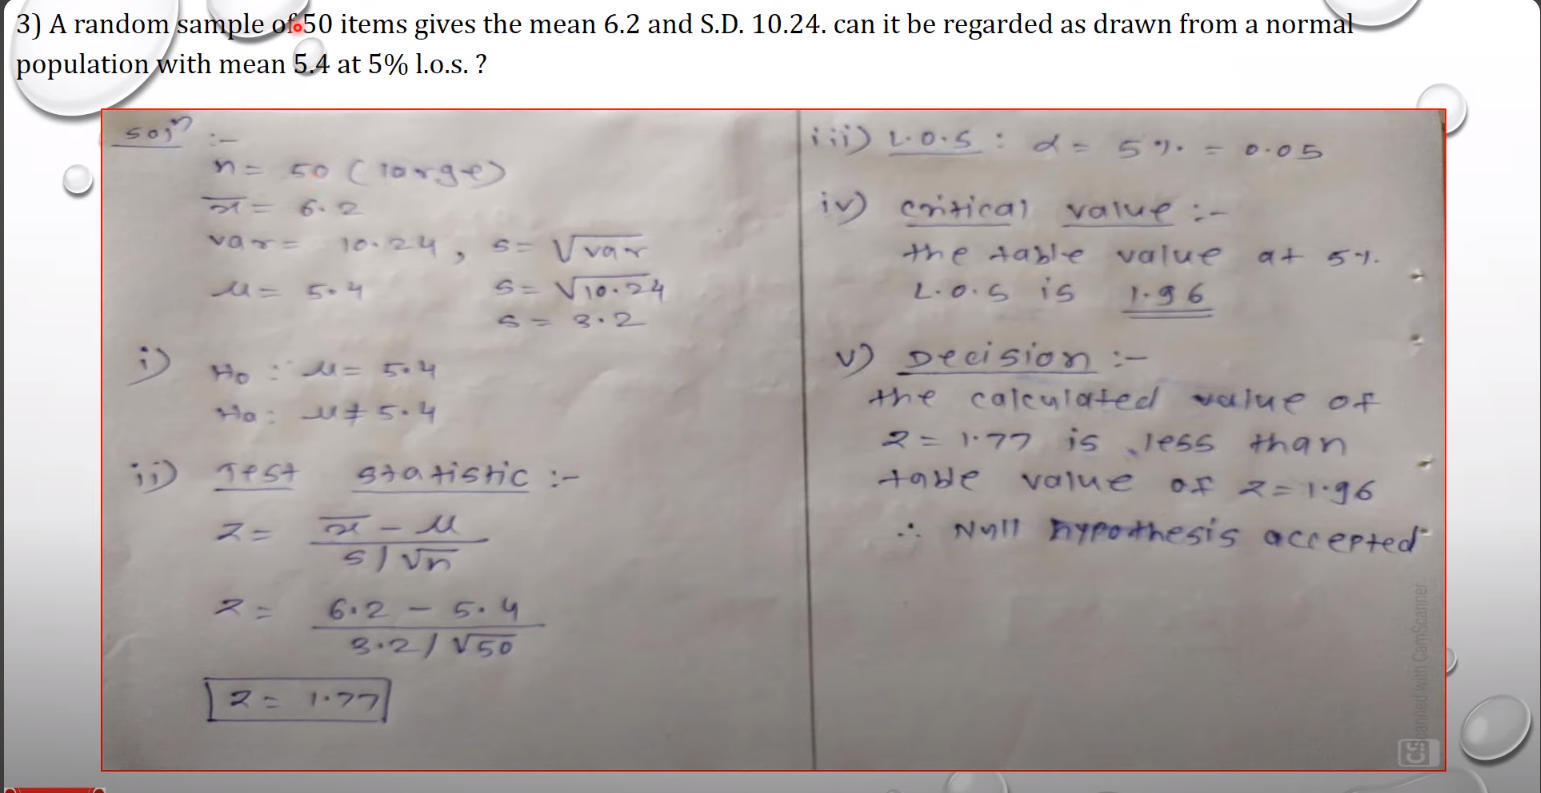 3) A random sample of 50 items gives the mean 6.2 and S.D. 10.24. can it be regarded as drawn from a normal
population with mean 5.4 at 5% l.o.s. ?
soln :-
n = 50 (large)
x̄ = 6.2
var = 10.24, s = √var
μ = 5.4 s = √10.24
s = 3.2
i) Ho : μ = 5.4
Ha : μ ≠ 5.4
ii) Test statistic :-
z = x̄ - μ
s / √n
z = 6.2 - 5.4
3.2 / √50
z = 1.77
iii) L.O.S : α = 5% = 0.05
iv) critical value :-
the table value at 5%
L.O.S is 1.96
v) Decision :-
the calculated value of
z = 1.77 is less than
table value of z = 1.96
∴ Null hypothesis accepted
CS Scanned with CamScanner